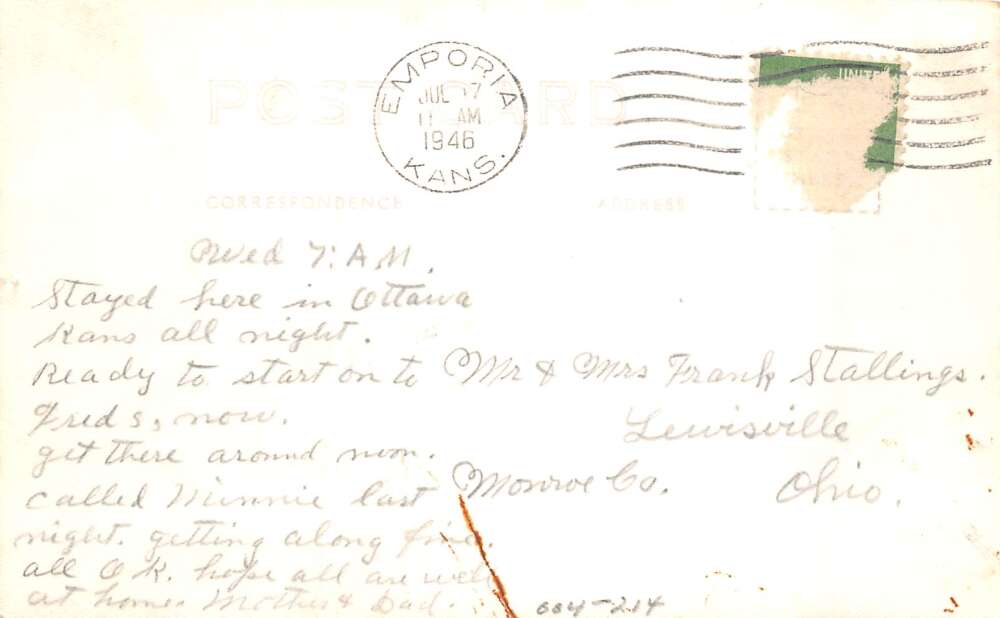 POST CARD
EMPORIA
JUL 17
11 AM
1946
KANS.
UNITE
CORRESPONDENCE
ADDRESS
Wed 7: A.M.
Stayed here in Ottawa
Kans all night.
Ready to start on to
Freds, now.
get there around noon.
called Minnie last
night. getting along fine.
all O.K. hope all are well
at home. Mother & Dad.
Mr & Mrs Frank Stallings.
Lewisville
Monroe Co. Ohio.
664-214